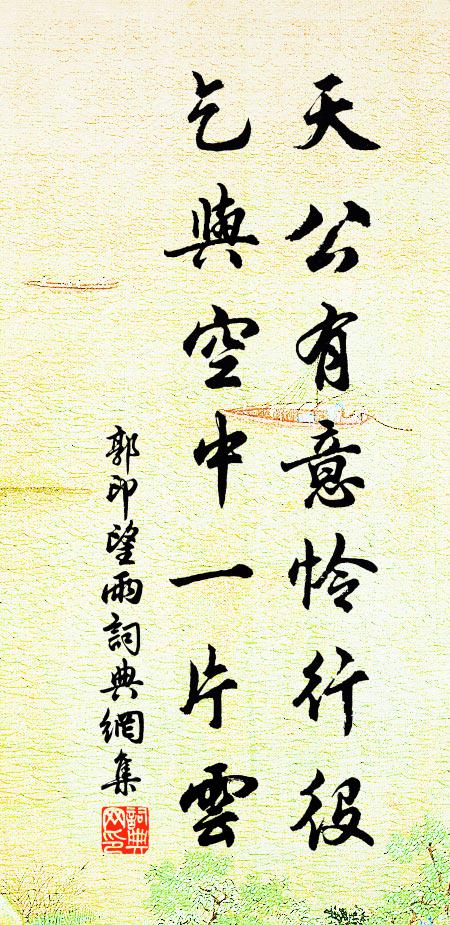 天公有意怜行役
乞與空中一片雲
郭印望雨詞典網集
詞典网印